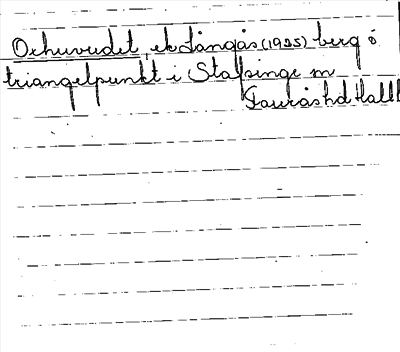 Oxhuvudet, ek Långås (1925) berg o
triangelpunkt i Stafsinge sn
Fauråshd Hall